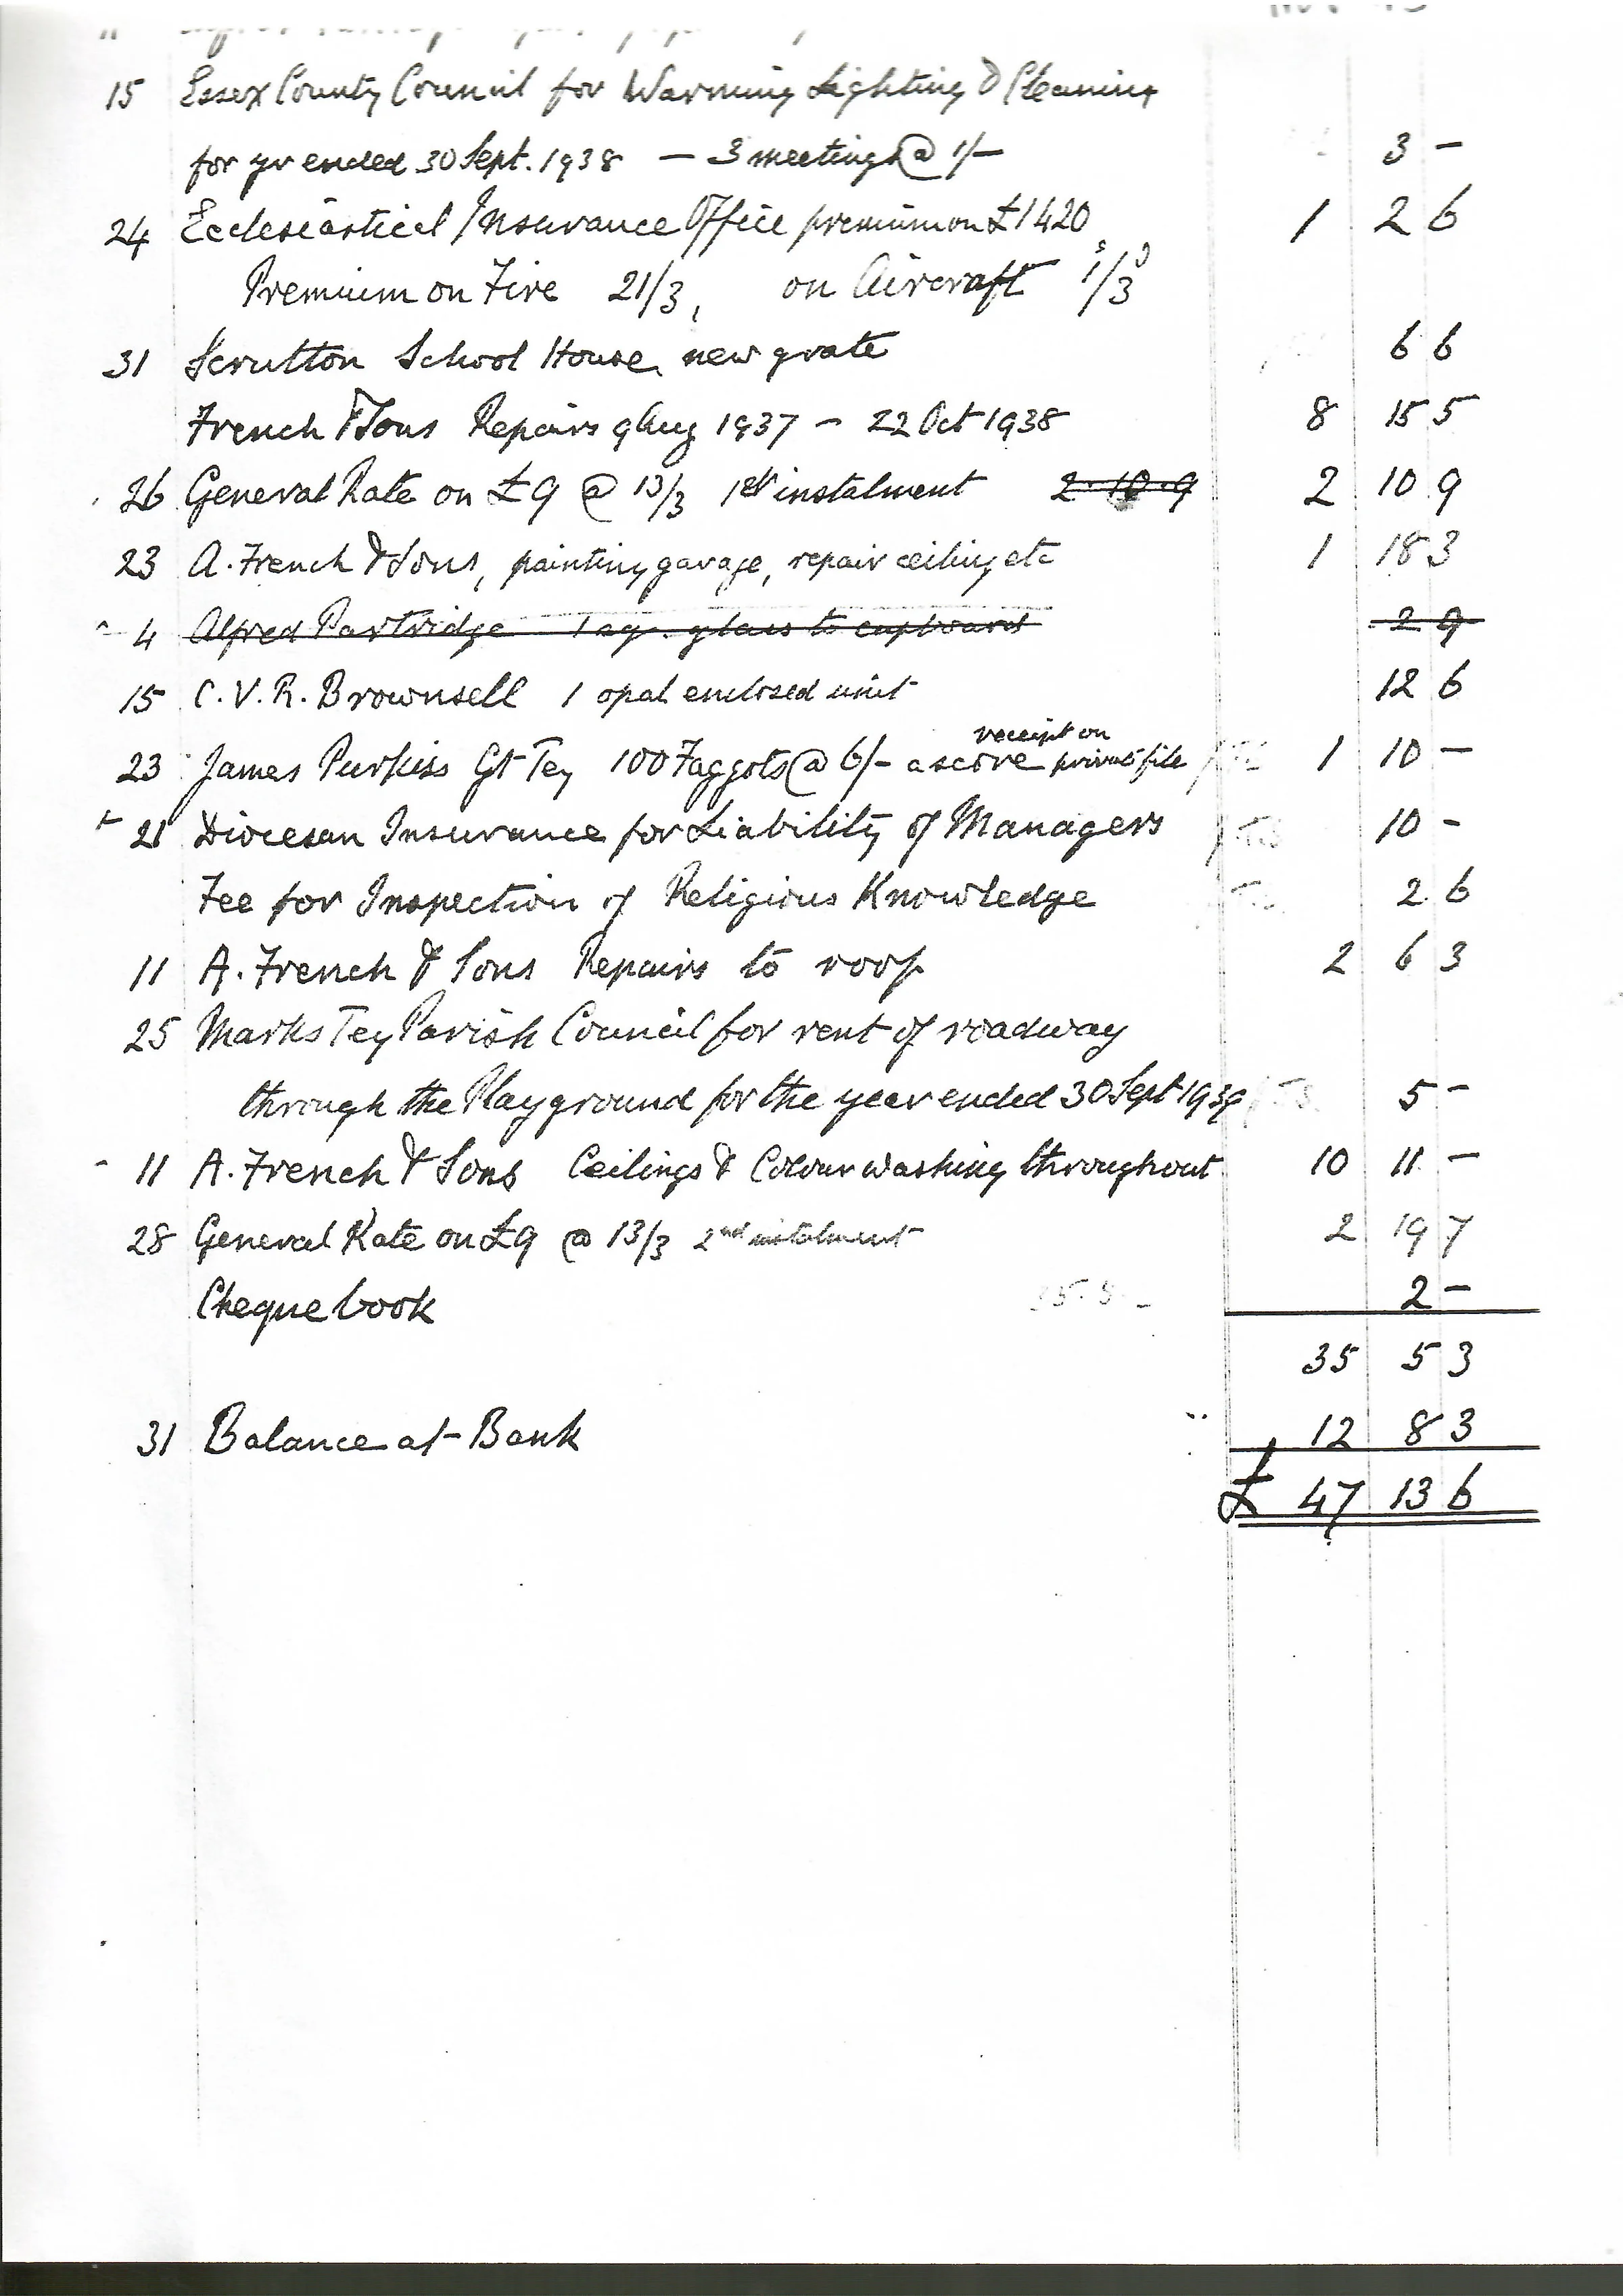 15 Essex County Council for Warming Lighting & Cleaning
for yr ended 30 Sept. 1938 — 3 meetings @ 1/- 3 -
24 Ecclesiastical Insurance Office premium on £1420 1 2 6
Premium on Fire 21/3, on Aircraft 1/3
31 Scrutton School House, new grate 6 6
French & Sons Repairs 9 Aug 1937 - 22 Oct 1938 8 15 5
26 General Rate on £9 @ 13/3 1st instalment 2-10-9 2 10 9
23 A. French & Sons, painting garage, repair ceiling etc 1 18 3
4 Alfred Partridge 1 sq. glass to cupboard 2 9
15 C.V.R. Brownsell 1 opal enclosed unit 12 6
receipt on
23 James Purkiss Gt Tey 100 Faggots @ 6/- a score private file 1 10 -
21 Diocesan Insurance for Liability of Managers 10 -
Fee for Inspection of Religious Knowledge 2 6
11 A. French & Sons Repairs to roof 2 6 3
25 Marks Tey Parish Council for rent of roadway
through the Playground for the year ended 30 Sept 1939 5 -
11 A. French & Sons Ceilings & Colour washing throughout 10 11 -
28 General Rate on £9 @ 13/3 2nd instalment 2 19 7
Cheque book 2 -
35 5 3
31 Balance at Bank 12 8 3
£ 47 13 6